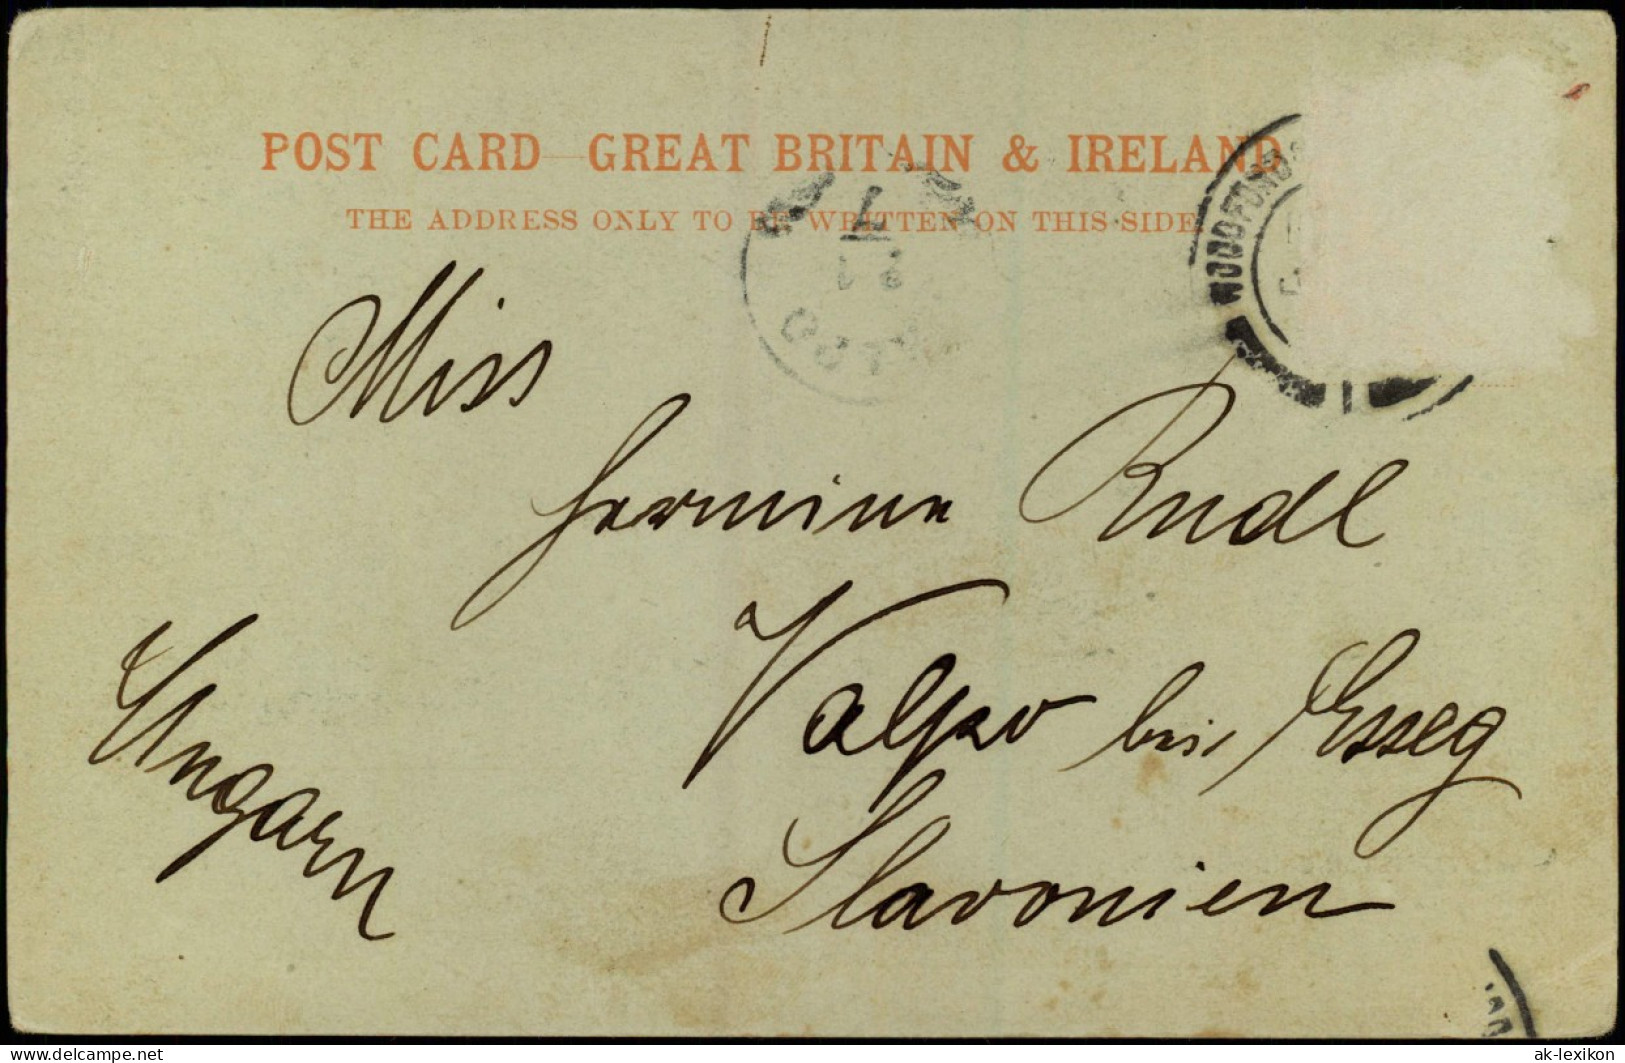 POST CARD GREAT BRITAIN & IRELAND
THE ADDRESS ONLY TO BE WRITTEN ON THIS SIDE
Miss
Hermine Rudl
Valpo bei Esseg
Slavonien
Ungarn
delcampe.net
ak-lexikon